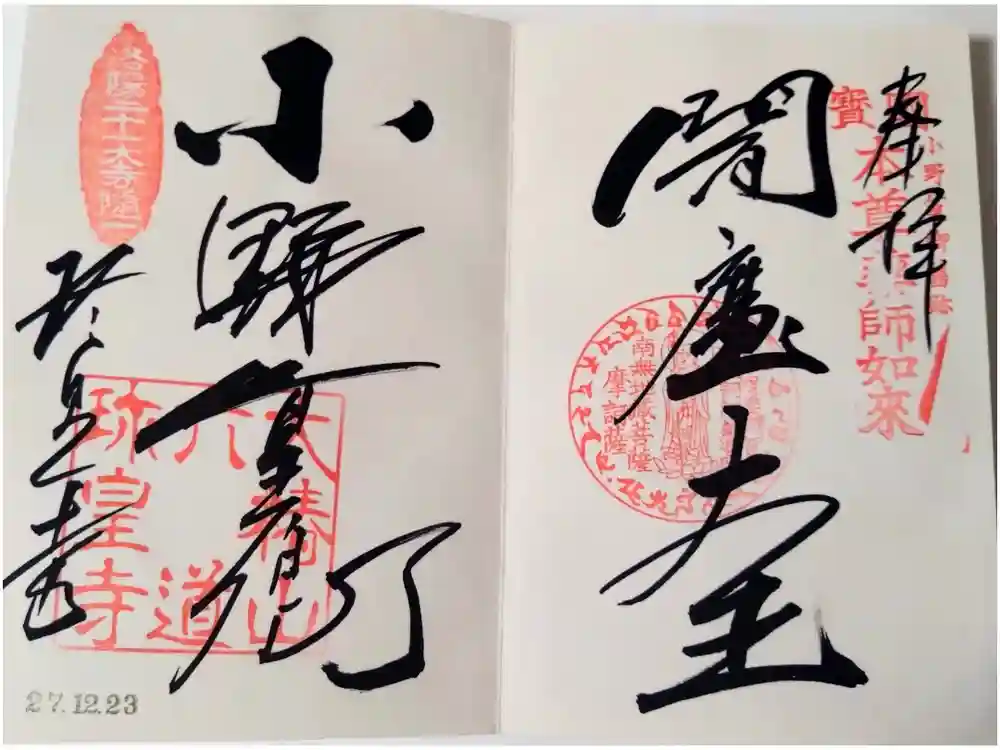 奉拝
國寶
本尊薬師如来
閻魔大王
南無地蔵菩薩
摩訶薩
小野篁卿
洛陽二十一大寺随一
珍皇寺
大椿山
六道
珍皇寺
27.12.23